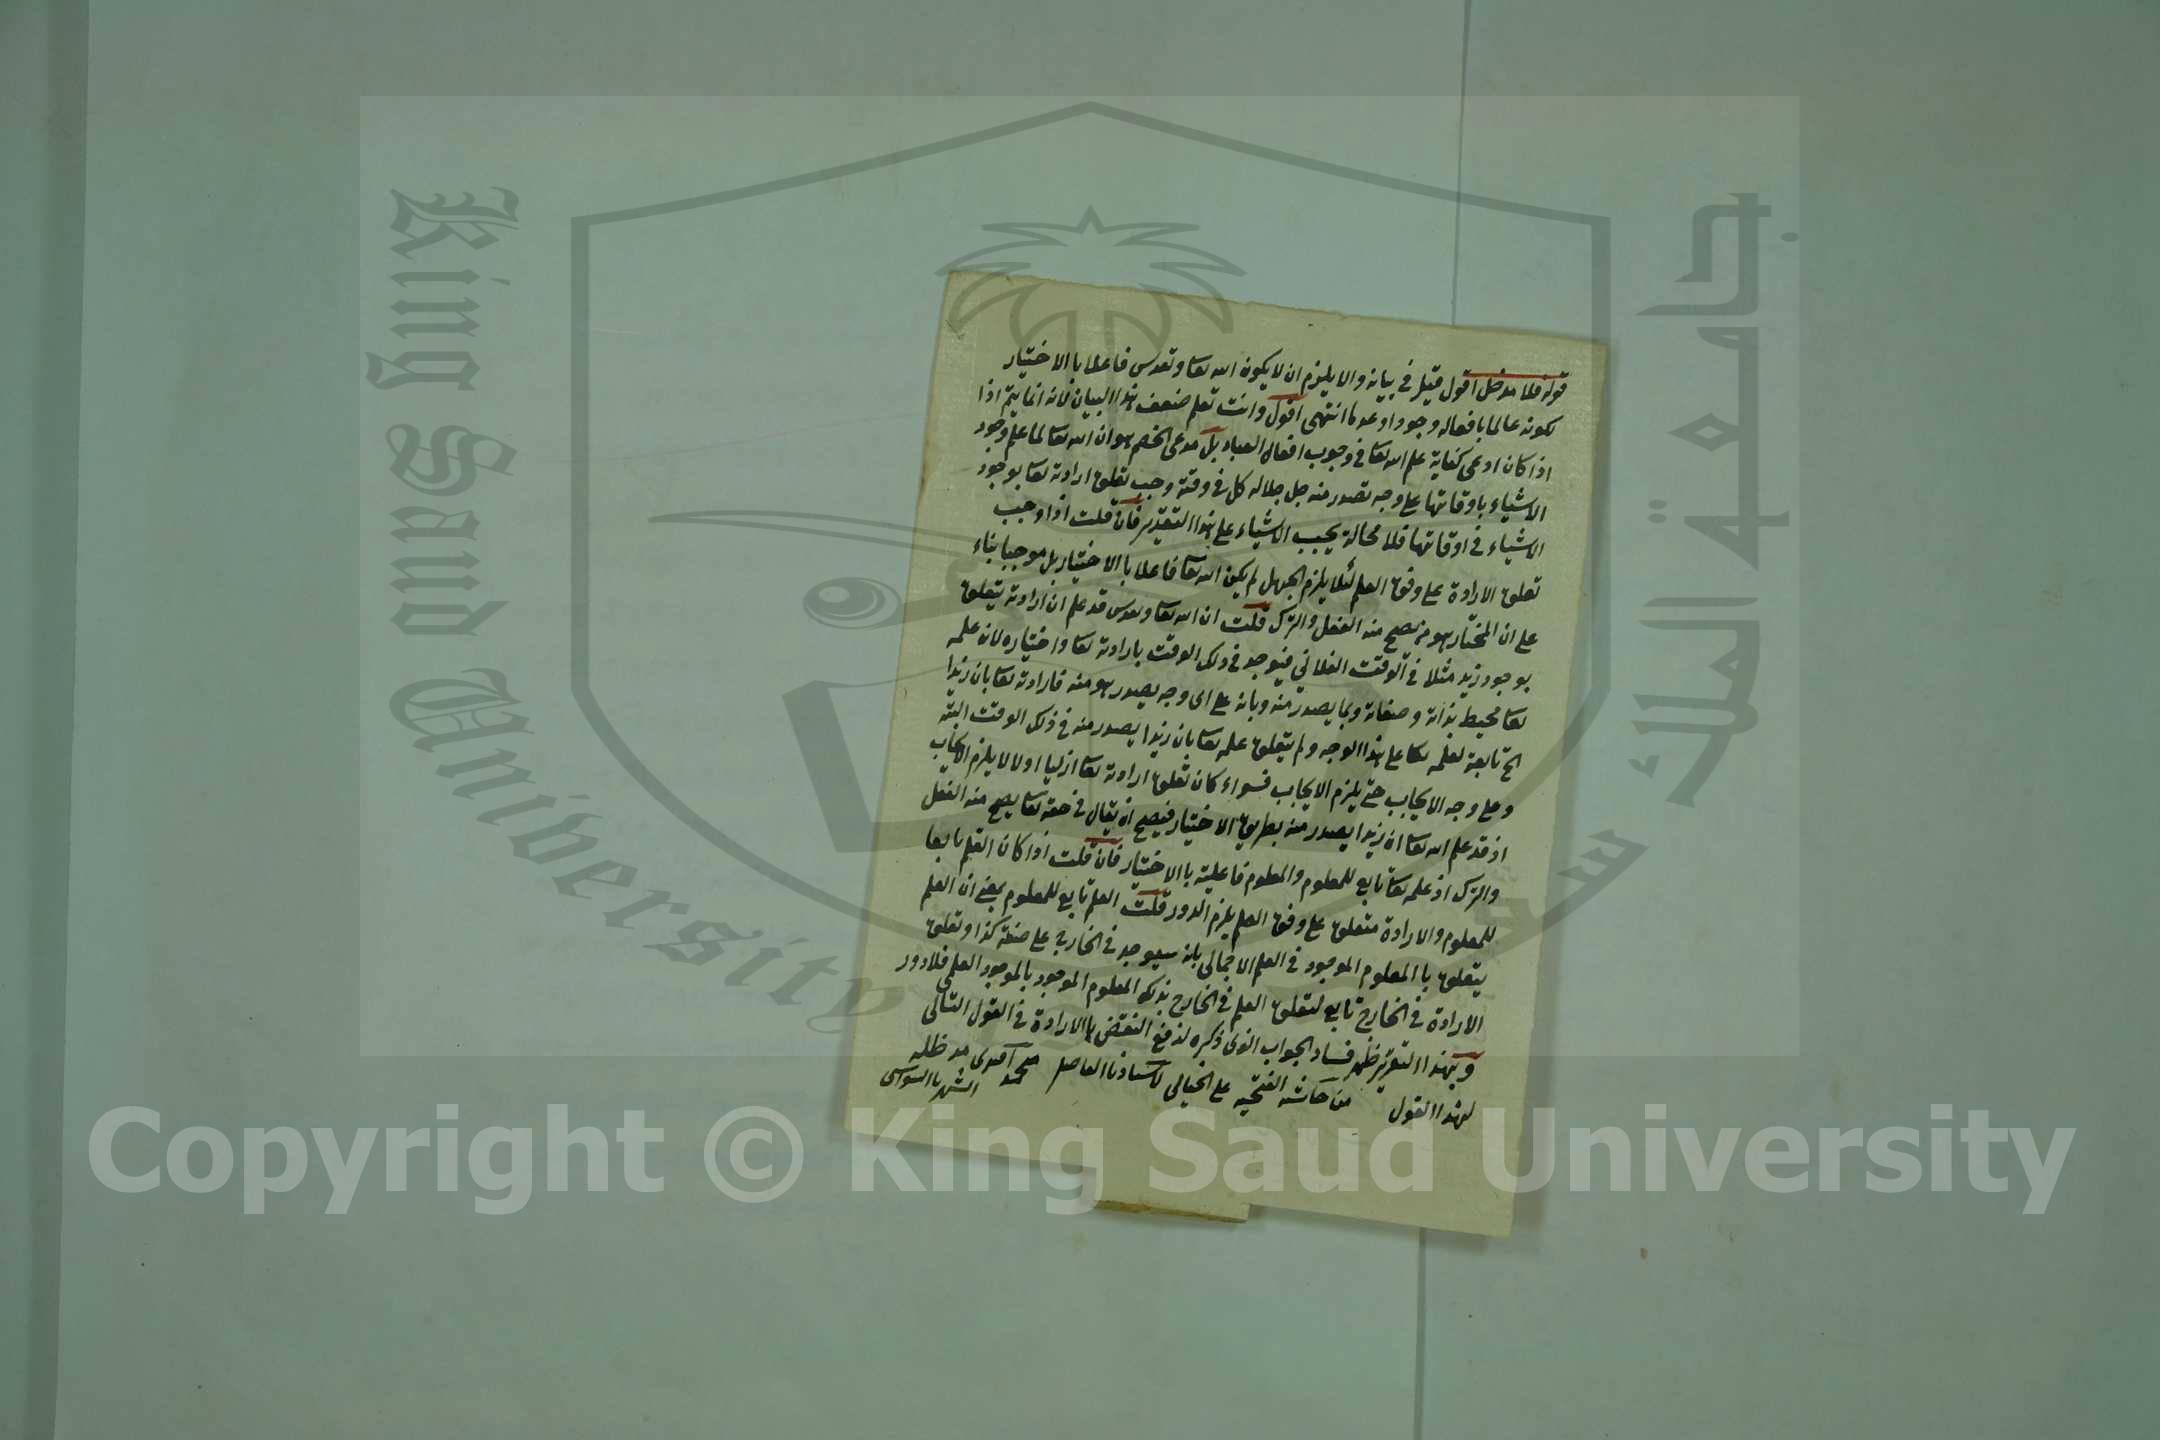 قوله فلا مدخل اقول قيل في بيانه والا يلزم ان لا يكون الله تعا وتقدس فاعلا بالاختيار
لكونه عالما بافعاله وجودا وعدما انتهى اقول وانت تعلم ضعف هذا البيان لانه انما يتم اذا
اذا كان ادعى كفاية علم الله تعا في وجوب افعال العباد بل مدعى الخصم هو ان الله تعا لما علم وجود
الاشياء باوقاتها على وجه تصدر منه جل جلاله كل في وقته وجب تعلق ارادته تعا بوجود
الاشياء في اوقاتها فلا محالة يجب الاشياء على هذا التقدير فان قلت اذا وجب
تعلق الارادة على وفق العلم لئلا يلزم الجهل لم يكن الله تعا فاعلا بالاختيار بل موجبا بناء
على ان المختار هو من يصح منه الفعل والترك قلت ان الله تعا وتقدس قد علم ان ارادته يتعلق
بوجود زيد مثلا في الوقت الفلاني فيوجد في ذلك الوقت بارادته تعا واختياره لان علمه
تعا محيط بذاته وصفاته وبما يصدر منه وبانه على اى وجه يصدر هو منه فارادته تعا بان زيدا
الخ تابعة لعلمه تعا على هذا الوجه ولم يتعلق علمه تعا بان زيدا يصدر منه في ذلك الوقت البتة
وعلى وجه الايجاب حتى يلزم الايجاب فسواء كان تعلق ارادته تعا ازليا او لا لا يلزم الايجاب
اذ قد علم الله تعا ان زيدا يصدر منه بطريق الاختيار فيصح ان يقال في حقه تعا يصح منه الفعل
والترك اذ علمه تعا تابع للمعلوم والمعلوم فاعليته بالاختيار فان قلت اذا كان العلم تابعا
للمعلوم والارادة متعلق على وفق العلم يلزم الدور قلت العلم تابع للمعلوم بمعنى ان العلم
يتعلق بالمعلوم الموجود في العلم الاجمالى بانه سيوجد في الخارج على صفة كذا وتعلق
الارادة في الخارج تابع لتعلق العلم في الخارج بذلك المعلوم الموجود بالوجود العلمى فلا دور
وبهذا التقرير ظهر فساد الجواب الذى ذكره لدفع النقض بالارادة في القول التالى
لهذا القول من حاشيه الفتحيه على الخيالى لاستادنا الفاضل محمد افندى مد ظله
الشهير بالسواسى